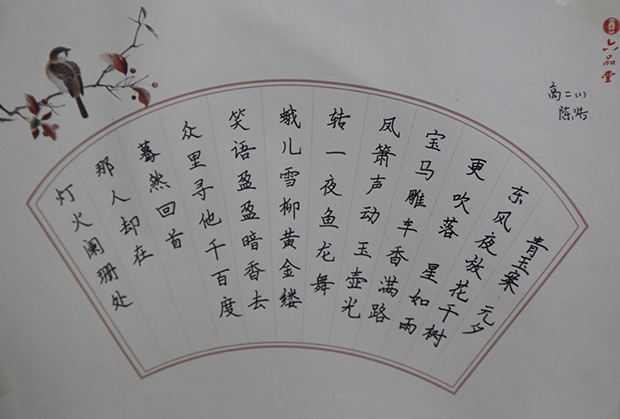 六品堂
高二(1)
陈浩
青玉案 元夕
东风夜放花千树
更吹落 星如雨
宝马雕车香满路
凤箫声动 玉壶光
转一夜鱼龙舞
蛾儿雪柳黄金缕
笑语盈盈暗香去
众里寻他千百度
蓦然回首
那人却在
灯火阑珊处